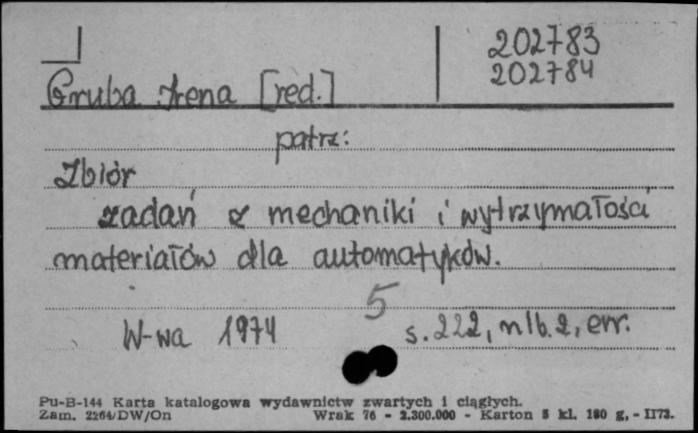 202783
202784
Gruba Irena [red.]
patrz:
Zbiór
zadań z mechaniki i wytrzymałości
materiałów dla automatyków.
5
W-wa 1974 s. 222, nlb. 2, err.
Pu-B-144 Karta katalogowa wydawnictw zwartych i ciągłych.
Zam. 2264/DW/On Wrak 76 - 2.300.000 - Karton 5 kl. 180 g, - II73.